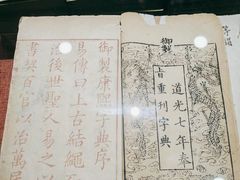 御製
道光七年奉
旨重刊字典
御製康熙字典序
易傳曰上古結繩
治後世聖人易之以
書契百官以治萬民